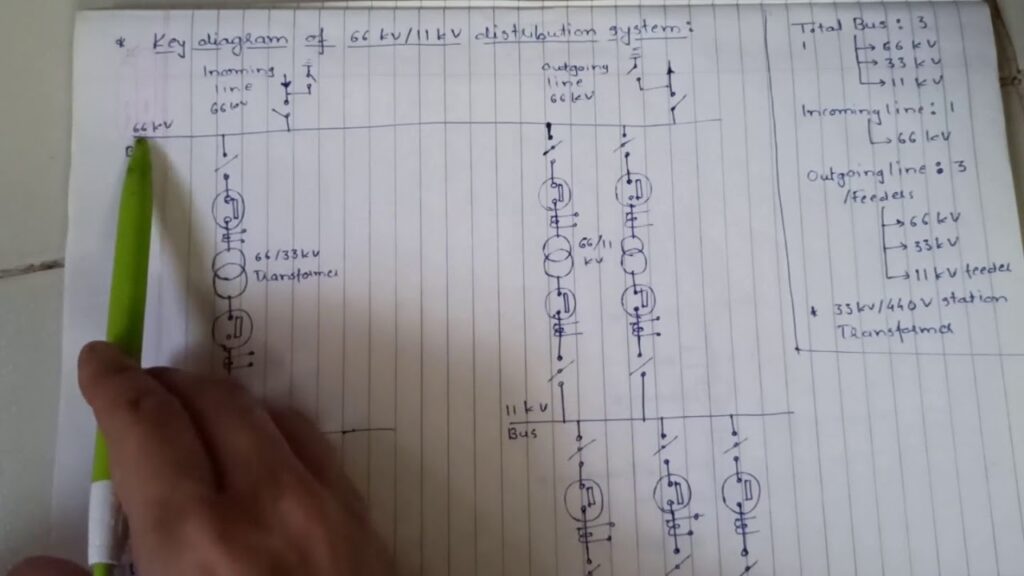 * Key diagram of 66 kV/11kV distribution system:
Incoming
line
66kV
Outgoing
line
66 kV
66 kV
66/33kV
Transformer
66/11
kV
11 kV
Bus
Total Bus: 3
1
66 kV
33 kV
11 kV
Incoming line: 1
66 kV
Outgoing line: 3
/feeders
66 kV
33kV
11 kV feeder
* 33kV/440V station
Transformer